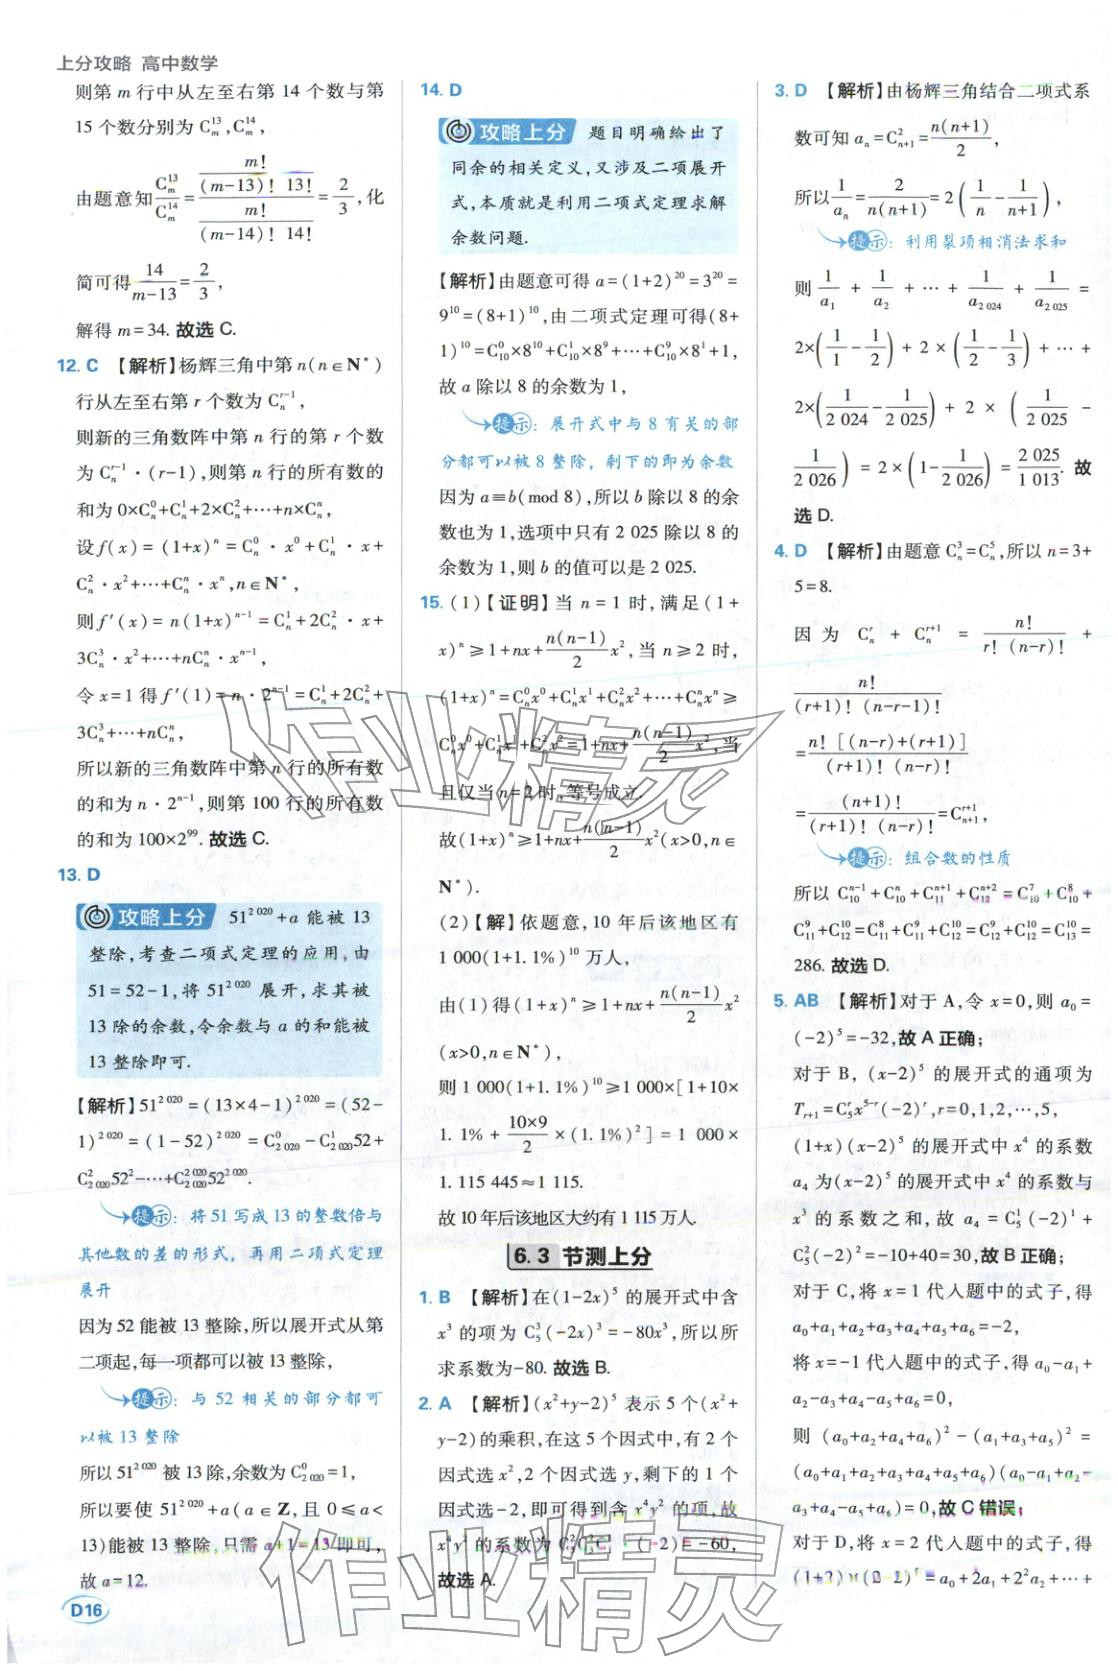 上分攻略 高中数学
则第 m 行中从左至右第 14 个数与第
15 个数分别为 C_m^{13},C_m^{14},
由题意知 C_m^{13}/C_m^{14} = [m!/((m-13)! 13!)]/[m!/((m-14)! 14!)] = 2/3,化
简可得 14/(m-13) = 2/3,
解得 m=34. 故选 C.
12. C 【解析】杨辉三角中第 n(n∈N*)
行从左至右第 r 个数为 C_n^{r-1},
则新的三角数阵中第 n 行的第 r 个数
为 C_n^{r-1}·(r-1),则第 n 行的所有数的
和为 0×C_n^0+C_n^1+2×C_n^2+⋯+n×C_n^n,
设 f(x)=(1+x)^n=C_n^0·x^0+C_n^1·x+
C_n^2·x^2+⋯+C_n^n·x^n,n∈N*,
则 f′(x)=n(1+x)^{n-1}=C_n^1+2C_n^2·x+
3C_n^3·x^2+⋯+nC_n^n·x^{n-1},
令 x=1 得 f′(1)=n·2^{n-1}=C_n^1+2C_n^2+
3C_n^3+⋯+nC_n^n,
所以新的三角数阵中第 n 行的所有数
的和为 n·2^{n-1},则第 100 行的所有数
的和为 100×2^{99}. 故选 C.
13. D
攻略上分 51^{2 020}+a 能被 13
整除,考查二项式定理的应用,由
51=52-1,将 51^{2 020} 展开,求其被
13 除的余数,令余数与 a 的和能被
13 整除即可.
【解析】51^{2 020}=(13×4-1)^{2 020}=(52-
1)^{2 020}=(1-52)^{2 020}=C_{2 020}^0-C_{2 020}^1 52+
C_{2 020}^2 52^2-⋯+C_{2 020}^{2 020} 52^{2 020}.
提示:将 51 写成 13 的整数倍与
其他数的差的形式,再用二项式定理
展开
因为 52 能被 13 整除,所以展开式从第
二项起,每一项都可以被 13 整除,
提示:与 52 相关的部分都可
以被 13 整除
所以 51^{2 020} 被 13 除,余数为 C_{2 020}^0=1,
所以要使 51^{2 020}+a(a∈Z,且 0≤a<
13)能被 13 整除,只需 a+1=13 即可,
故 a=12.
D16
14. D
攻略上分 题目明确给出了
同余的相关定义,又涉及二项展开
式,本质就是利用二项式定理求解
余数问题.
【解析】由题意可得 a=(1+2)^{20}=3^{20}=
9^{10}=(8+1)^{10},由二项式定理可得(8+
1)^{10}=C_{10}^0×8^{10}+C_{10}^1×8^9+⋯+C_{10}^9×8^1+1,
故 a 除以 8 的余数为 1,
提示:展开式中与 8 有关的部
分都可以被 8 整除,剩下的即为余数
因为 a≡b(mod 8),所以 b 除以 8 的余
数也为 1,选项中只有 2 025 除以 8 的
余数为 1,则 b 的值可以是 2 025.
15. (1)【证明】当 n=1 时,满足(1+
x)^n≥1+nx+n(n-1)/2 x^2,当 n≥2 时,
(1+x)^n=C_n^0x^0+C_n^1x^1+C_n^2x^2+⋯+C_n^nx^n≥
C_n^0x^0+C_n^1x+C_n^2x^2=1+nx+n(n-1)/2 x^2,当
且仅当 n=2 时,等号成立.
故(1+x)^n≥1+nx+n(n-1)/2 x^2(x>0,n∈
N*).
(2)【解】依题意,10 年后该地区有
1 000(1+1.1%)^{10} 万人,
由(1)得(1+x)^n≥1+nx+n(n-1)/2 x^2
(x>0,n∈N*),
则 1 000(1+1.1%)^{10}≥1 000×[1+10×
1.1%+(10×9)/2×(1.1%)^2]=1 000×
1.115 445≈1 115.
故 10 年后该地区大约有 1 115 万人.
6.3 节测上分
1. B 【解析】在(1-2x)^5 的展开式中含
x^3 的项为 C_5^3(-2x)^3=-80x^3,所以所
求系数为-80. 故选 B.
2. A 【解析】(x^2+y-2)^5 表示 5 个(x^2+
y-2)的乘积,在这 5 个因式中,有 2 个
因式选 x^2,2 个因式选 y,剩下的 1 个
因式选-2,即可得到含 x^4y^2 的项,故
x^4y^2 的系数为 C_5^2C_3^2C_1^1·(-2)=-60,
故选 A.
3. D 【解析】由杨辉三角结合二项式系
数可知 a_n=C_{n+1}^2=n(n+1)/2,
所以 1/a_n=2/(n(n+1))=2(1/n-1/(n+1)),
提示:利用裂项相消法求和
则 1/a_1+1/a_2+⋯+1/a_{2 024}+1/a_{2 025}=
2×(1/1-1/2)+2×(1/2-1/3)+⋯+
2×(1/2 024-1/2 025)+2×(1/2 025-
1/2 026)=2×(1-1/2 026)=2 025/1 013. 故
选 D.
4. D 【解析】由题意 C_n^3=C_n^5,所以 n=3+
5=8.
因为 C_n^r+C_n^{r+1}=n!/(r!(n-r)!)+
n!/((r+1)!(n-r-1)!)
=n![(n-r)+(r+1)]/((r+1)!(n-r)!)
=(n+1)!/((r+1)!(n-r)!)=C_{n+1}^{r+1},
提示:组合数的性质
所以 C_{10}^{n-1}+C_{10}^n+C_{11}^{n+1}+C_{12}^{n+2}=C_{10}^7+C_{10}^8+
C_{11}^9+C_{12}^{10}=C_{11}^8+C_{11}^9+C_{12}^{10}=C_{12}^9+C_{12}^{10}=C_{13}^{10}=
286. 故选 D.
5. AB 【解析】对于 A,令 x=0,则 a_0=
(-2)^5=-32,故 A 正确;
对于 B,(x-2)^5 的展开式的通项为
T_{r+1}=C_5^r x^{5-r}(-2)^r,r=0,1,2,⋯,5,
(1+x)(x-2)^5 的展开式中 x^4 的系数
a_4 为(x-2)^5 的展开式中 x^4 的系数与
x^3 的系数之和,故 a_4=C_5^1(-2)^1+
C_5^2(-2)^2=-10+40=30,故 B 正确;
对于 C,将 x=1 代入题中的式子,得
a_0+a_1+a_2+a_3+a_4+a_5+a_6=-2,
将 x=-1 代入题中的式子,得 a_0-a_1+
a_2-a_3+a_4-a_5+a_6=0,
则 (a_0+a_2+a_4+a_6)^2-(a_1+a_3+a_5)^2=
(a_0+a_1+a_2+a_3+a_4+a_5+a_6)(a_0-a_1+a_2-
a_3+a_4-a_5+a_6)=0,故 C 错误;
对于 D,将 x=2 代入题中的式子,得
(1+2)×(2-2)^5=a_0+2a_1+2^2a_2+⋯+
作业精灵
作业精灵